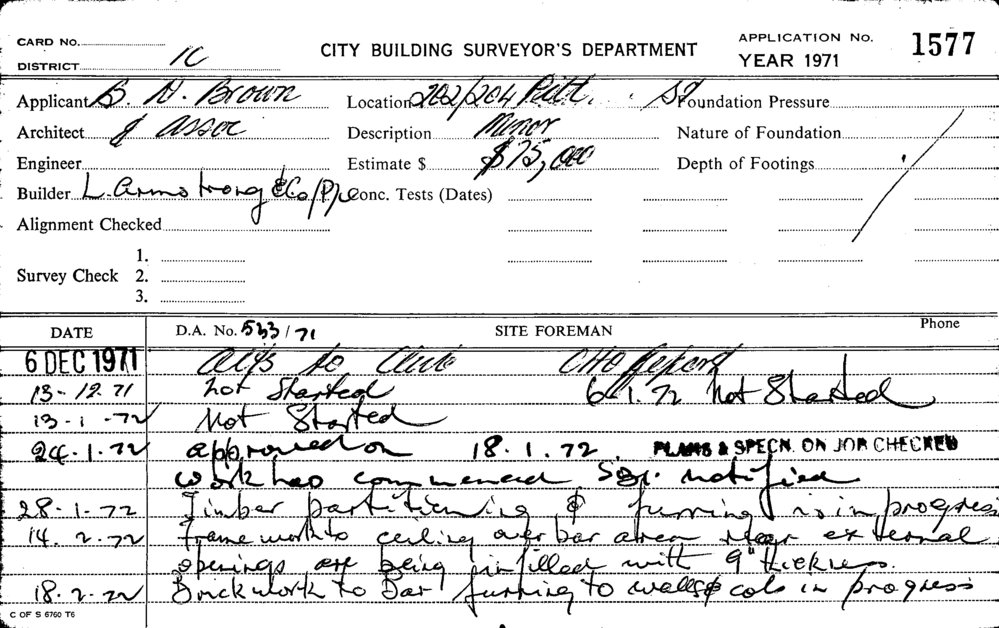 CARD No.
DISTRICT 1C
CITY BUILDING SURVEYOR'S DEPARTMENT
APPLICATION No. 1577
YEAR 1971
Applicant B. D. Brown Location 202/204 Pitt St Foundation Pressure
Architect & assoc Description Minor Nature of Foundation
Engineer Estimate $ $75,000 Depth of Footings
Builder L. Armstrong & Co P/L Conc. Tests (Dates)
Alignment Checked
Survey Check 1.
2.
3.
DATE D.A. No. 533/71 SITE FOREMAN Phone
6 DEC 1971 to Club Report
13-12.71 Not Started 6.1.72 Not Started
13-1-72 Not Started
24.1.72 approved on 18.1.72 PLANS & SPECN. ON JOB CHECKED
work has commenced notified
28-1-72 Timber partitioning & furring is in progress
14.2.72 framework to ceiling over bar area external
openings are being infilled with 9" thickness
18.2.72 Brickwork to Bar furring to walls & cols in progress
C OF S 6760 T6